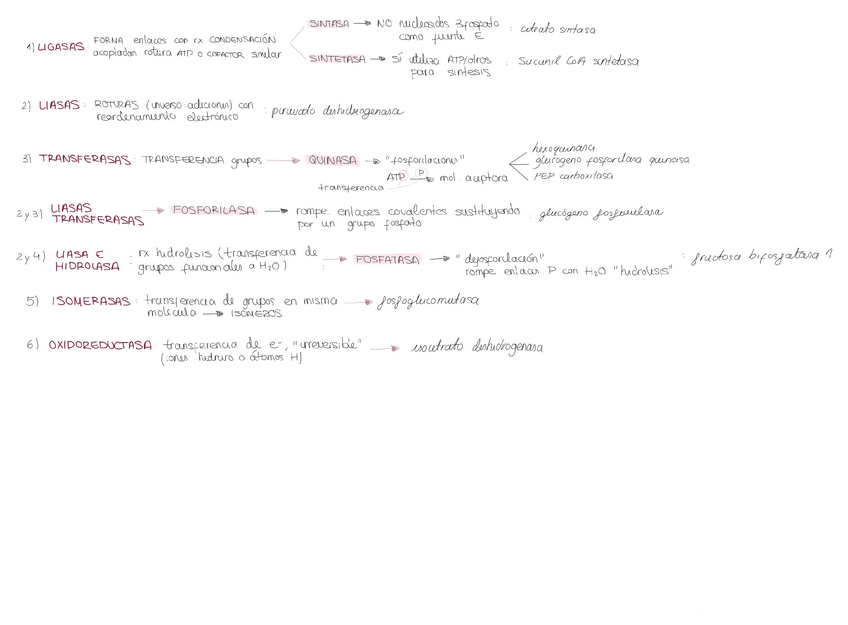 1) LIGASAS: FORMA enlaces con rx CONDENSACIÓN
acopladas rotura ATP o COFACTOR similar
SINTASA → NO nucleósidos 3fosfato
como fuente E : citrato sintasa
SINTETASA → SÍ utiliza ATP/otros
para síntesis : Succinil CoA sintetasa
2) LIASAS: ROTURAS (inverso adiciones) con
reordenamiento electrónico : piruvato deshidrogenasa
3) TRANSFERASAS: TRANSFERENCIA grupos → QUINASA → "fosforilaciones"
ATP P → mol. aceptora
transferencia
hexoquinasa
glucógeno fosforilasa quinasa
PEP carboxilasa
2 y 3) LIASAS
TRANSFERASAS → FOSFORILASA → rompe enlaces covalentes sustituyendo
por un grupo fosfato : glucógeno fosforilasa
2 y 4) LIASA E
HIDROLASA : rx hidrolisis (transferencia de
grupos funcionales a H2O) → FOSFATASA → "desfosforilación"
rompe enlaces P con H2O "hidrolisis" : fructosa bifosfatasa 1
5) ISOMERASAS: transferencia de grupos en misma
molécula → ISÓMEROS → fosfoglucomutasa
6) OXIDOREDUCTASA transferencia de e-, "irreversible"
(iones hidruro o átomos H) → isocitrato deshidrogenasa